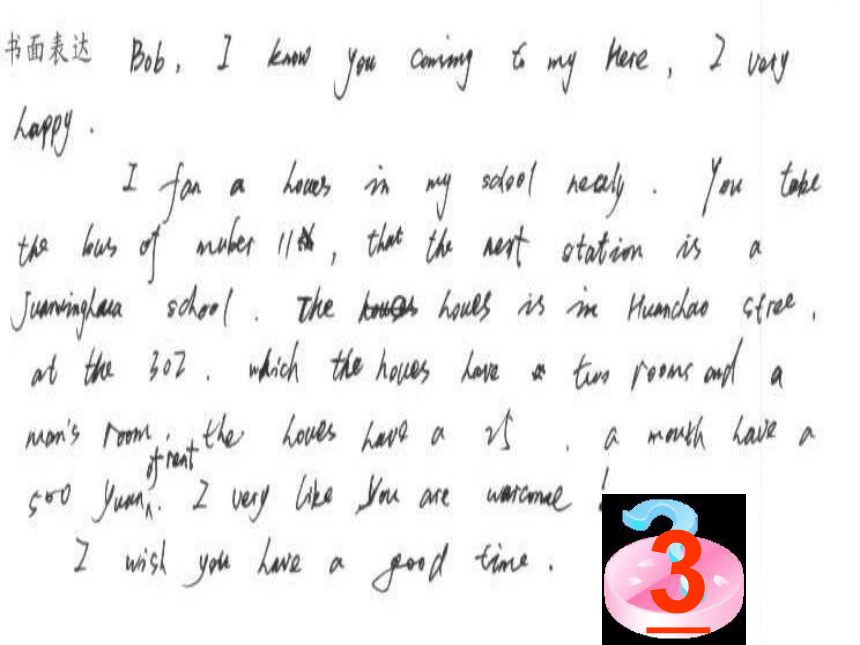 书面表达 Bob, I know you coming to my here, I very
happy.
I fan a houes in my school nearly. You take
the bus of nuber 11th, that the next station is a
school. The houes is in Huanchao stree,
at the 302. which the houes have two rooms and a
man's room, the houes have a 25 . a mouth have a
500 yuan of rent. I very like you are warcome !
I wish you have a good time.
3